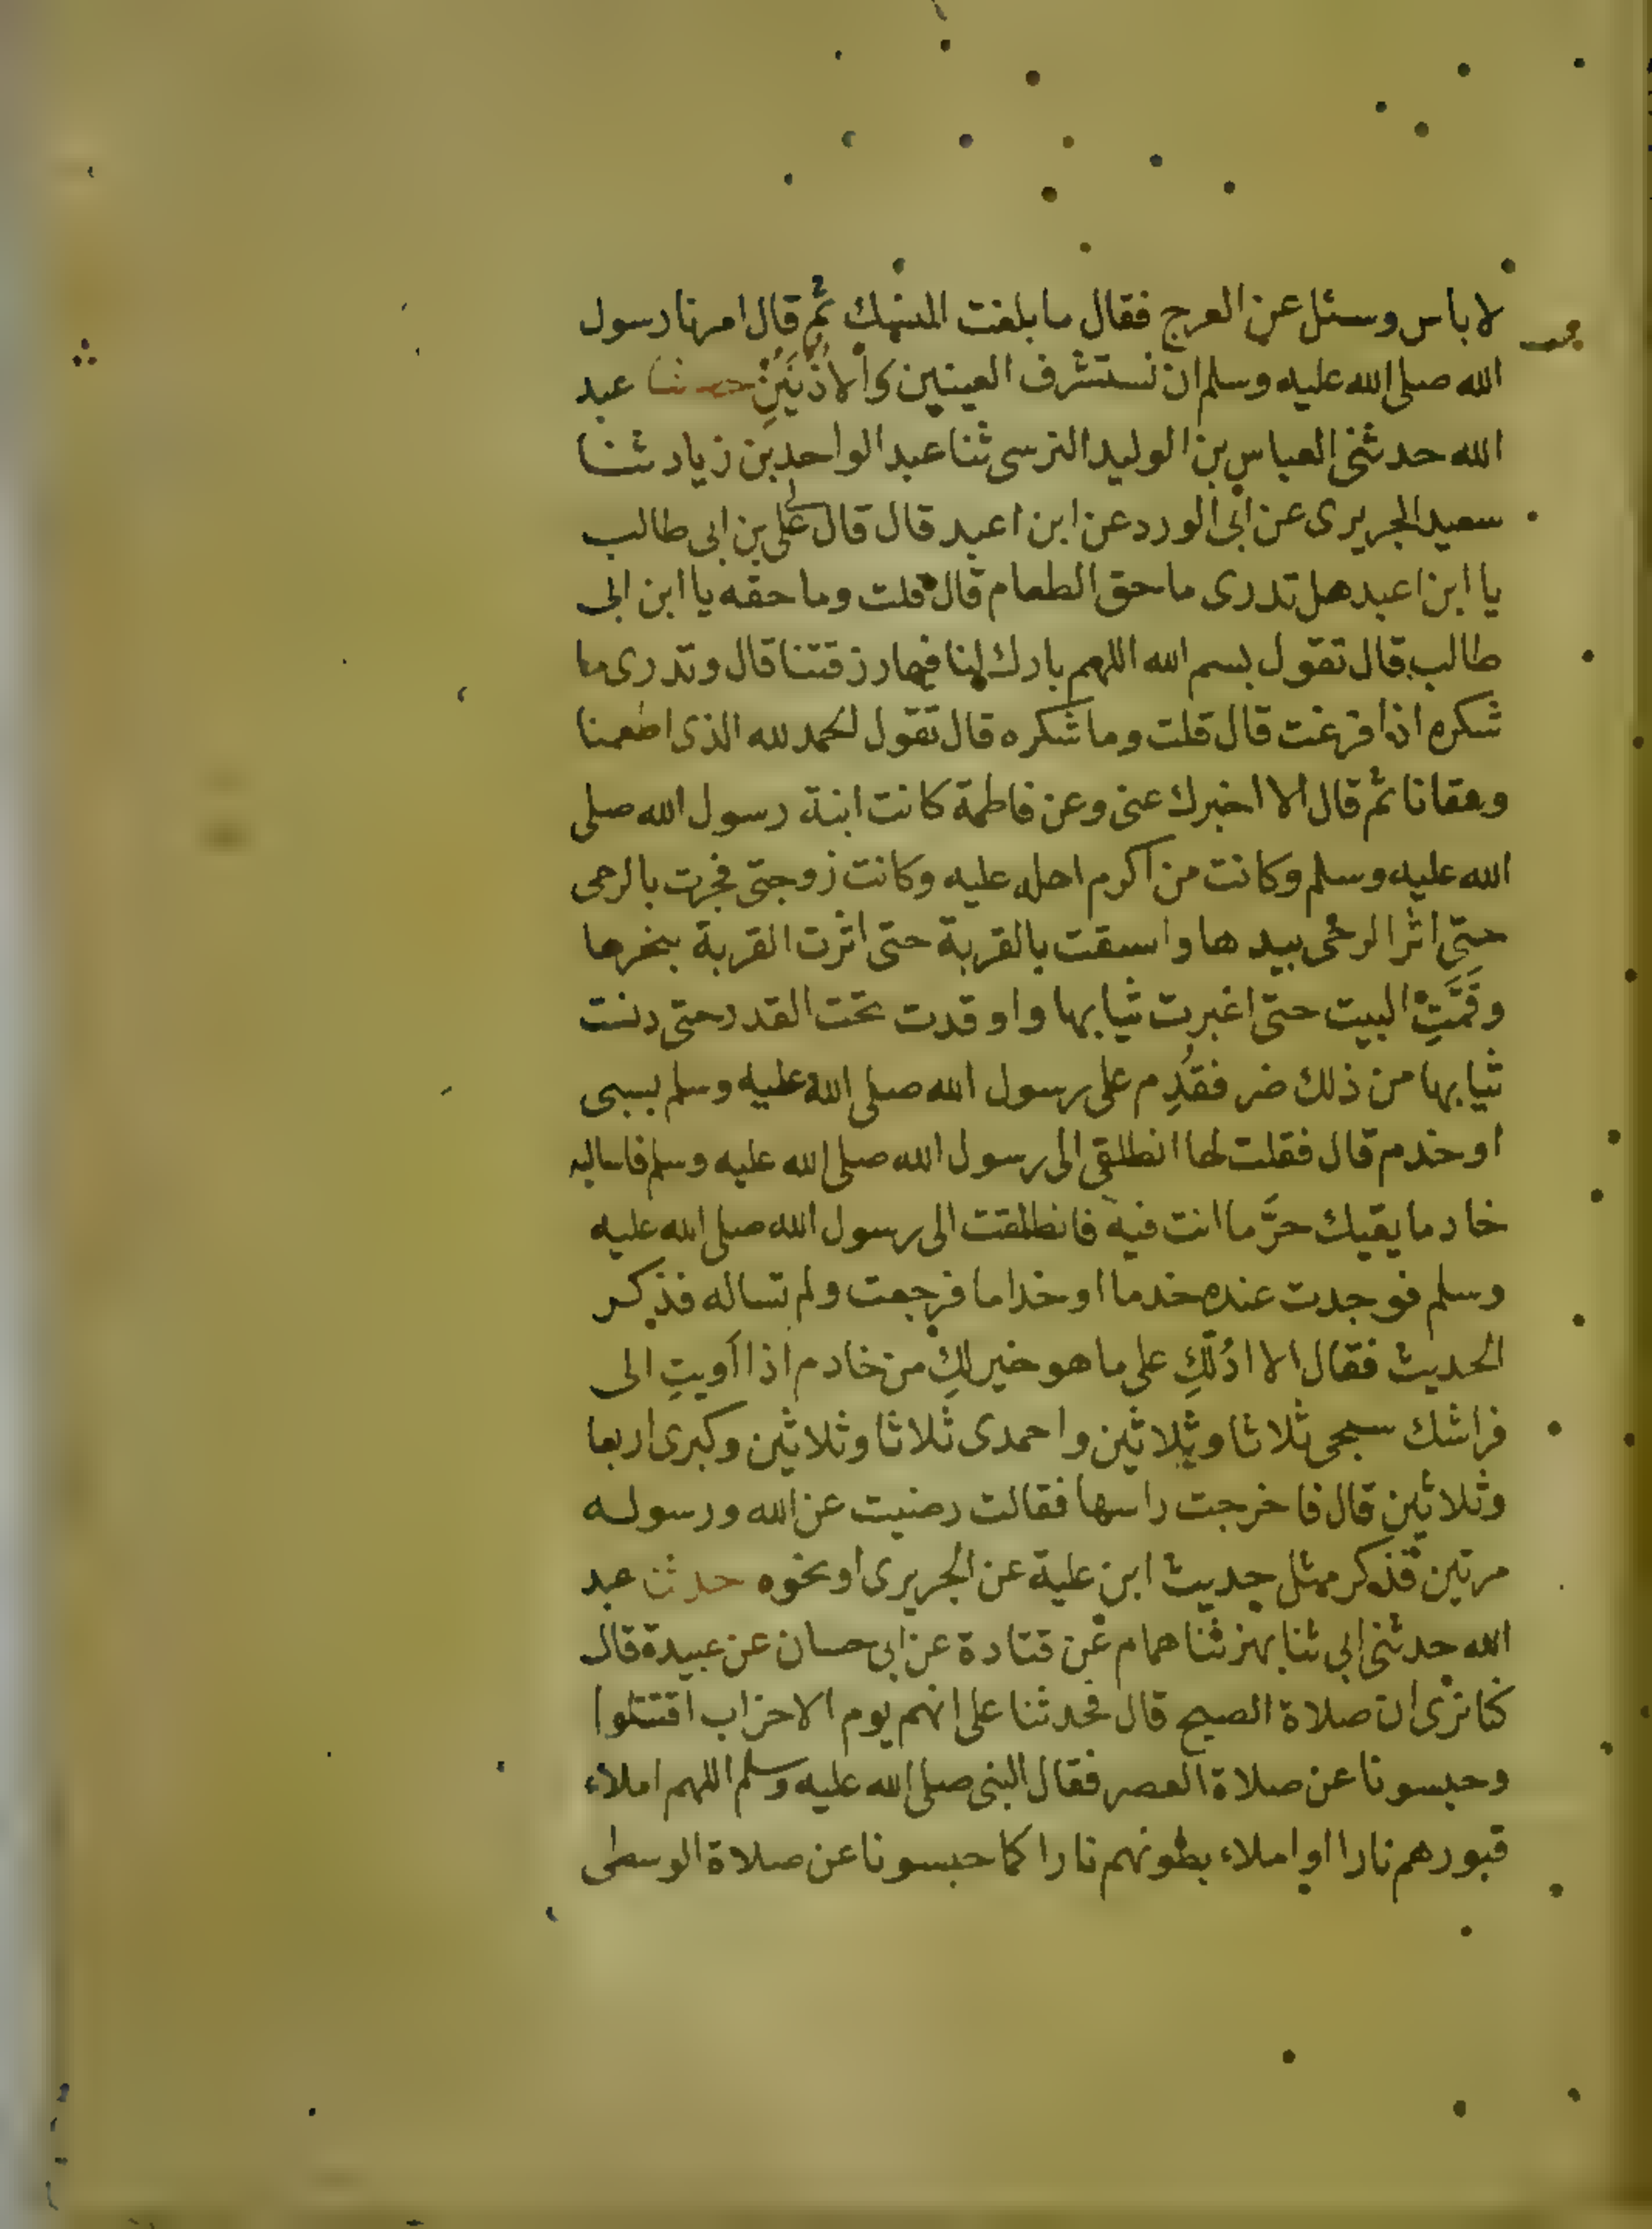 لا باس وسئل عن العرج فقال ما بلغت المنسك ثم قال امرنا رسول
الله صلى الله عليه وسلم ان نستشرف العينين والاذنين حدثنا عبد
الله حدثنى العباس بن الوليد النرسى ثنا عبد الواحد بن زياد ثنا
سعيد الجريرى عن ابى الورد عن ابن اعبد قال قال لى على بن ابى طالب
يا ابن اعبد هل تدرى ما حق الطعام قال قلت وما حقه يا ابن ابى
طالب قال تقول بسم الله اللهم بارك لنا فيما رزقتنا قال وتدرى ما
شكره اذا فرغت قال قلت وما شكره قال تقول الحمد لله الذى اطعمنا
وسقانا ثم قال الا اخبرك عنى وعن فاطمة كانت ابنة رسول الله صلى
الله عليه وسلم وكانت من اكرم اهله عليه وكانت زوجتى فجرت بالرحى
حتى اثر الرحى بيدها واسقت بالقربة حتى اثرت القربة بنحرها
وقمَّتِ البيت حتى اغبرت ثيابها واوقدت تحت القدر حتى دنست
ثيابها من ذلك ضر فقُدِم على رسول الله صلى الله عليه وسلم بسبى
او خدم قال فقلت لها انطلقى الى رسول الله صلى الله عليه وسلم فاساليه
خادما يقيك حرَّ ما انت فيه فانطلقت الى رسول الله صلى الله عليه
وسلم فوجدت عنده خدما او خداما فرجعت ولم تساله فذكر
الحديث فقال الا ادُلّكِ على ما هو خير لكِ من خادم اذا اويتِ الى
فراشك سبحى ثلاثا وثلاثين واحمدى ثلاثا وثلاثين وكبرى اربعا
وثلاثين قال فاخرجت راسها فقالت رضيت عن الله ورسوله
مرتين فذكر مثل حديث ابن علية عن الجريرى او نحوه حدثنا عبد
الله حدثنى ابى ثنا بهز ثنا همام عن قتادة عن ابى حسان عن عبيدة قال
كنا نرى ان صلاة الصبح قال فحدثنا على انهم يوم الاحزاب اقتتلوا
وحبسونا عن صلاة العصر فقال النبى صلى الله عليه وسلم اللهم املاء
قبورهم نارا او املاء بطونهم نارا كما حبسونا عن صلاة الوسطى